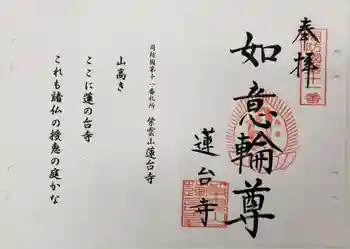 奉拝
如意輪尊
蓮台寺
周防国第十一番札所 紫雲山 蓮台寺
山高き
ここに蓮の台寺
これも諸仏の授恵の庭かな